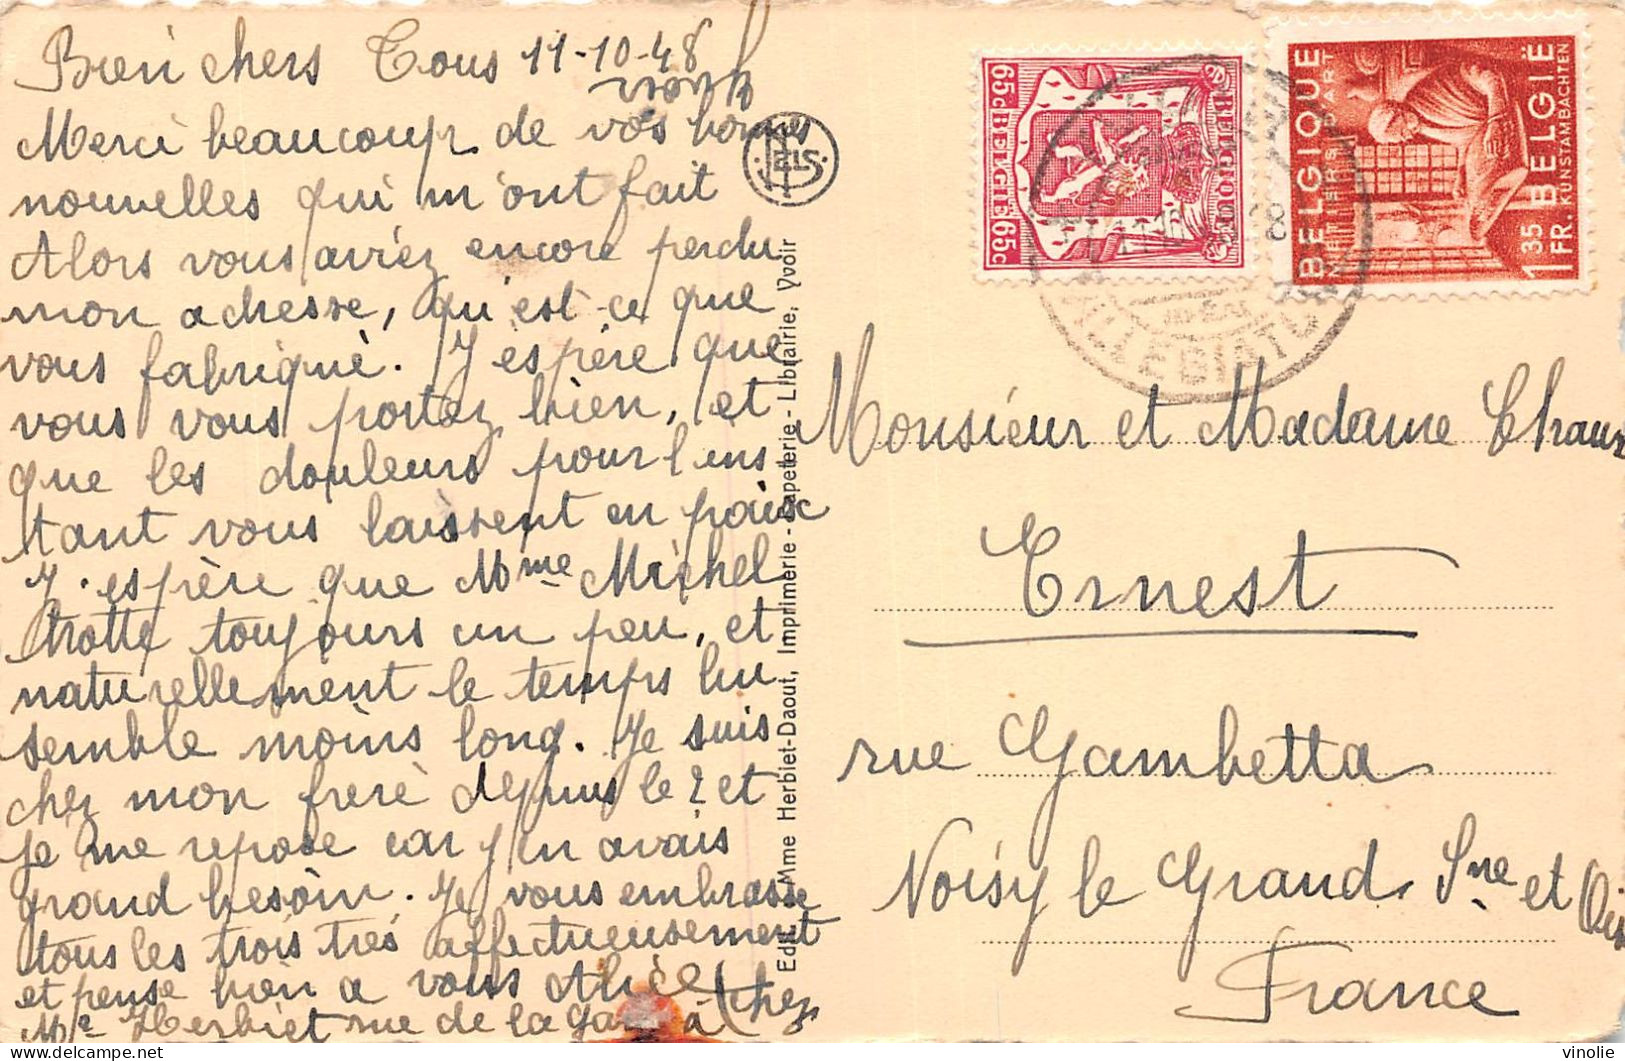 Bien chers Tous 11-10-48
Merci beaucoup de vos bonnes
nouvelles qui m'ont fait
Alors vous aviez encore perdu
mon adresse, qu'est-ce que
vous fabriqué. J'espère que
vous vous portez bien, et
que les douleurs pour l'ins
tant vous laissent en paix
J'espère que Mme Michel
trotte toujours un peu, et
naturellement le temps lui
semble moins long. Je suis
chez mon frère depuis le 2 et
je me repose car j'en avais
grand besoin. Je vous embrasse
tous les trois très affectueusement
et pense bien à vous Alice
(chez
Me Herbiet rue de la gare à
Edit. Mme Herbiet-Daout, Imprimerie - Papeterie - Librairie, Yvoir
65c BELGIE BELGIQUE 65c
BELGIQUE
MÉTIERS D'ART
BELGIË
KUNSTAMBACHTEN
1 35 FR.
Monsieur et Madame
Ernest
rue Gambetta
Noisy le Grand Sne et Oise
France
vinolie